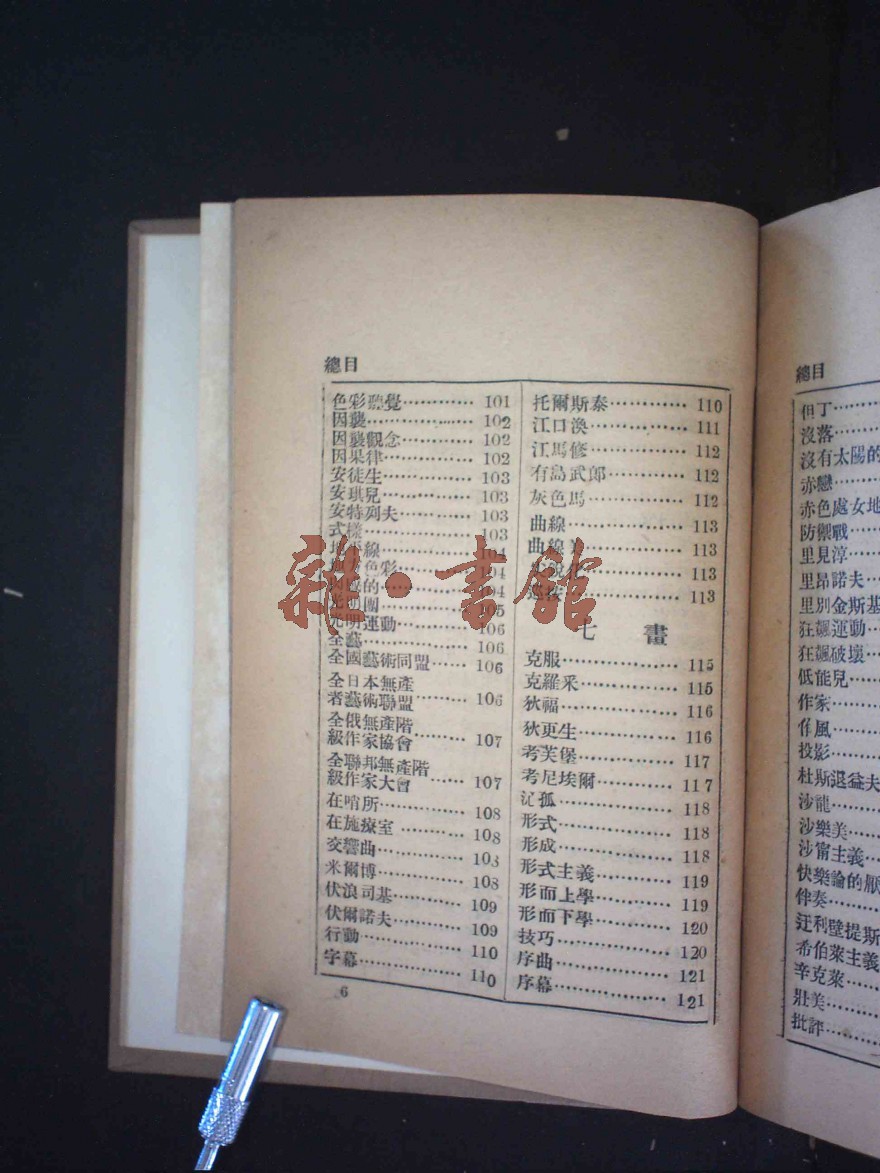 總目
色彩聽覺………… 101
因襲………… 102
因襲觀念………… 102
因果律………… 102
安徒生………… 103
安琪兒………… 103
安特列夫………… 103
式樣………… 103
地平線………… 104
色彩………… 104
的………… 104
光明團………… 105
光明運動………… 106
全藝………… 106
全國藝術同盟…… 106
全日本無產
者藝術聯盟…… 106
全俄無產階
級作家協會…… 107
全聯邦無產階
級作家大會…… 107
在哨所………… 108
在施療室………… 108
交響曲………… 108
米爾博………… 108
伏浪司基………… 109
伏爾諾夫………… 109
行動………… 110
字幕………… 110
6
托爾斯泰………… 110
江口渙………… 111
江馬修………… 112
有島武郎………… 112
灰色馬………… 112
曲線………… 113
曲線………… 113
………… 113
………… 113
七 畫
克服………… 115
克羅采………… 115
狄福………… 116
狄更生………… 116
考芙堡………… 117
考尼埃爾………… 117
沁孤………… 118
形式………… 118
形成………… 118
形式主義………… 119
形而上學………… 119
形而下學………… 120
技巧………… 120
序曲………… 121
序幕………… 121
雜·書館
總目
但丁……
沒落……
沒有太陽的
赤戀……
赤色處女地
防禦戰……
里見淳……
里昂諾夫…
里別金斯基
狂飆運動…
狂飆破壞…
低能兒……
作家……
作風……
投影……
杜斯退益夫
沙龍……
沙樂美……
沙甯主義…
快樂論的厭
伴奏……
迂利壁提斯
希伯萊主義
辛克萊……
壯美……
批評……